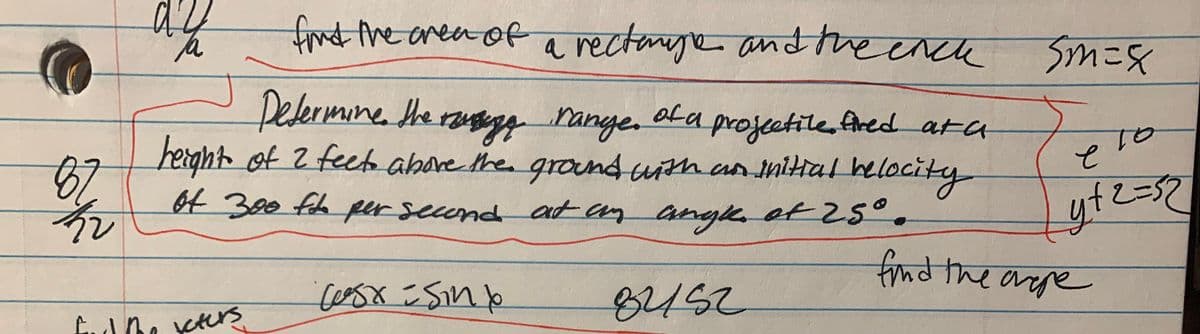 find the area of a rectangle and the circle 5m=x
Determine the range of a projectile fired at a
e 10
87 height of 2 feet above the ground with an initial velocity
y+2=52
of 300 ft per second at an angle of 25°.
find the
cosx = sin 82152
find the